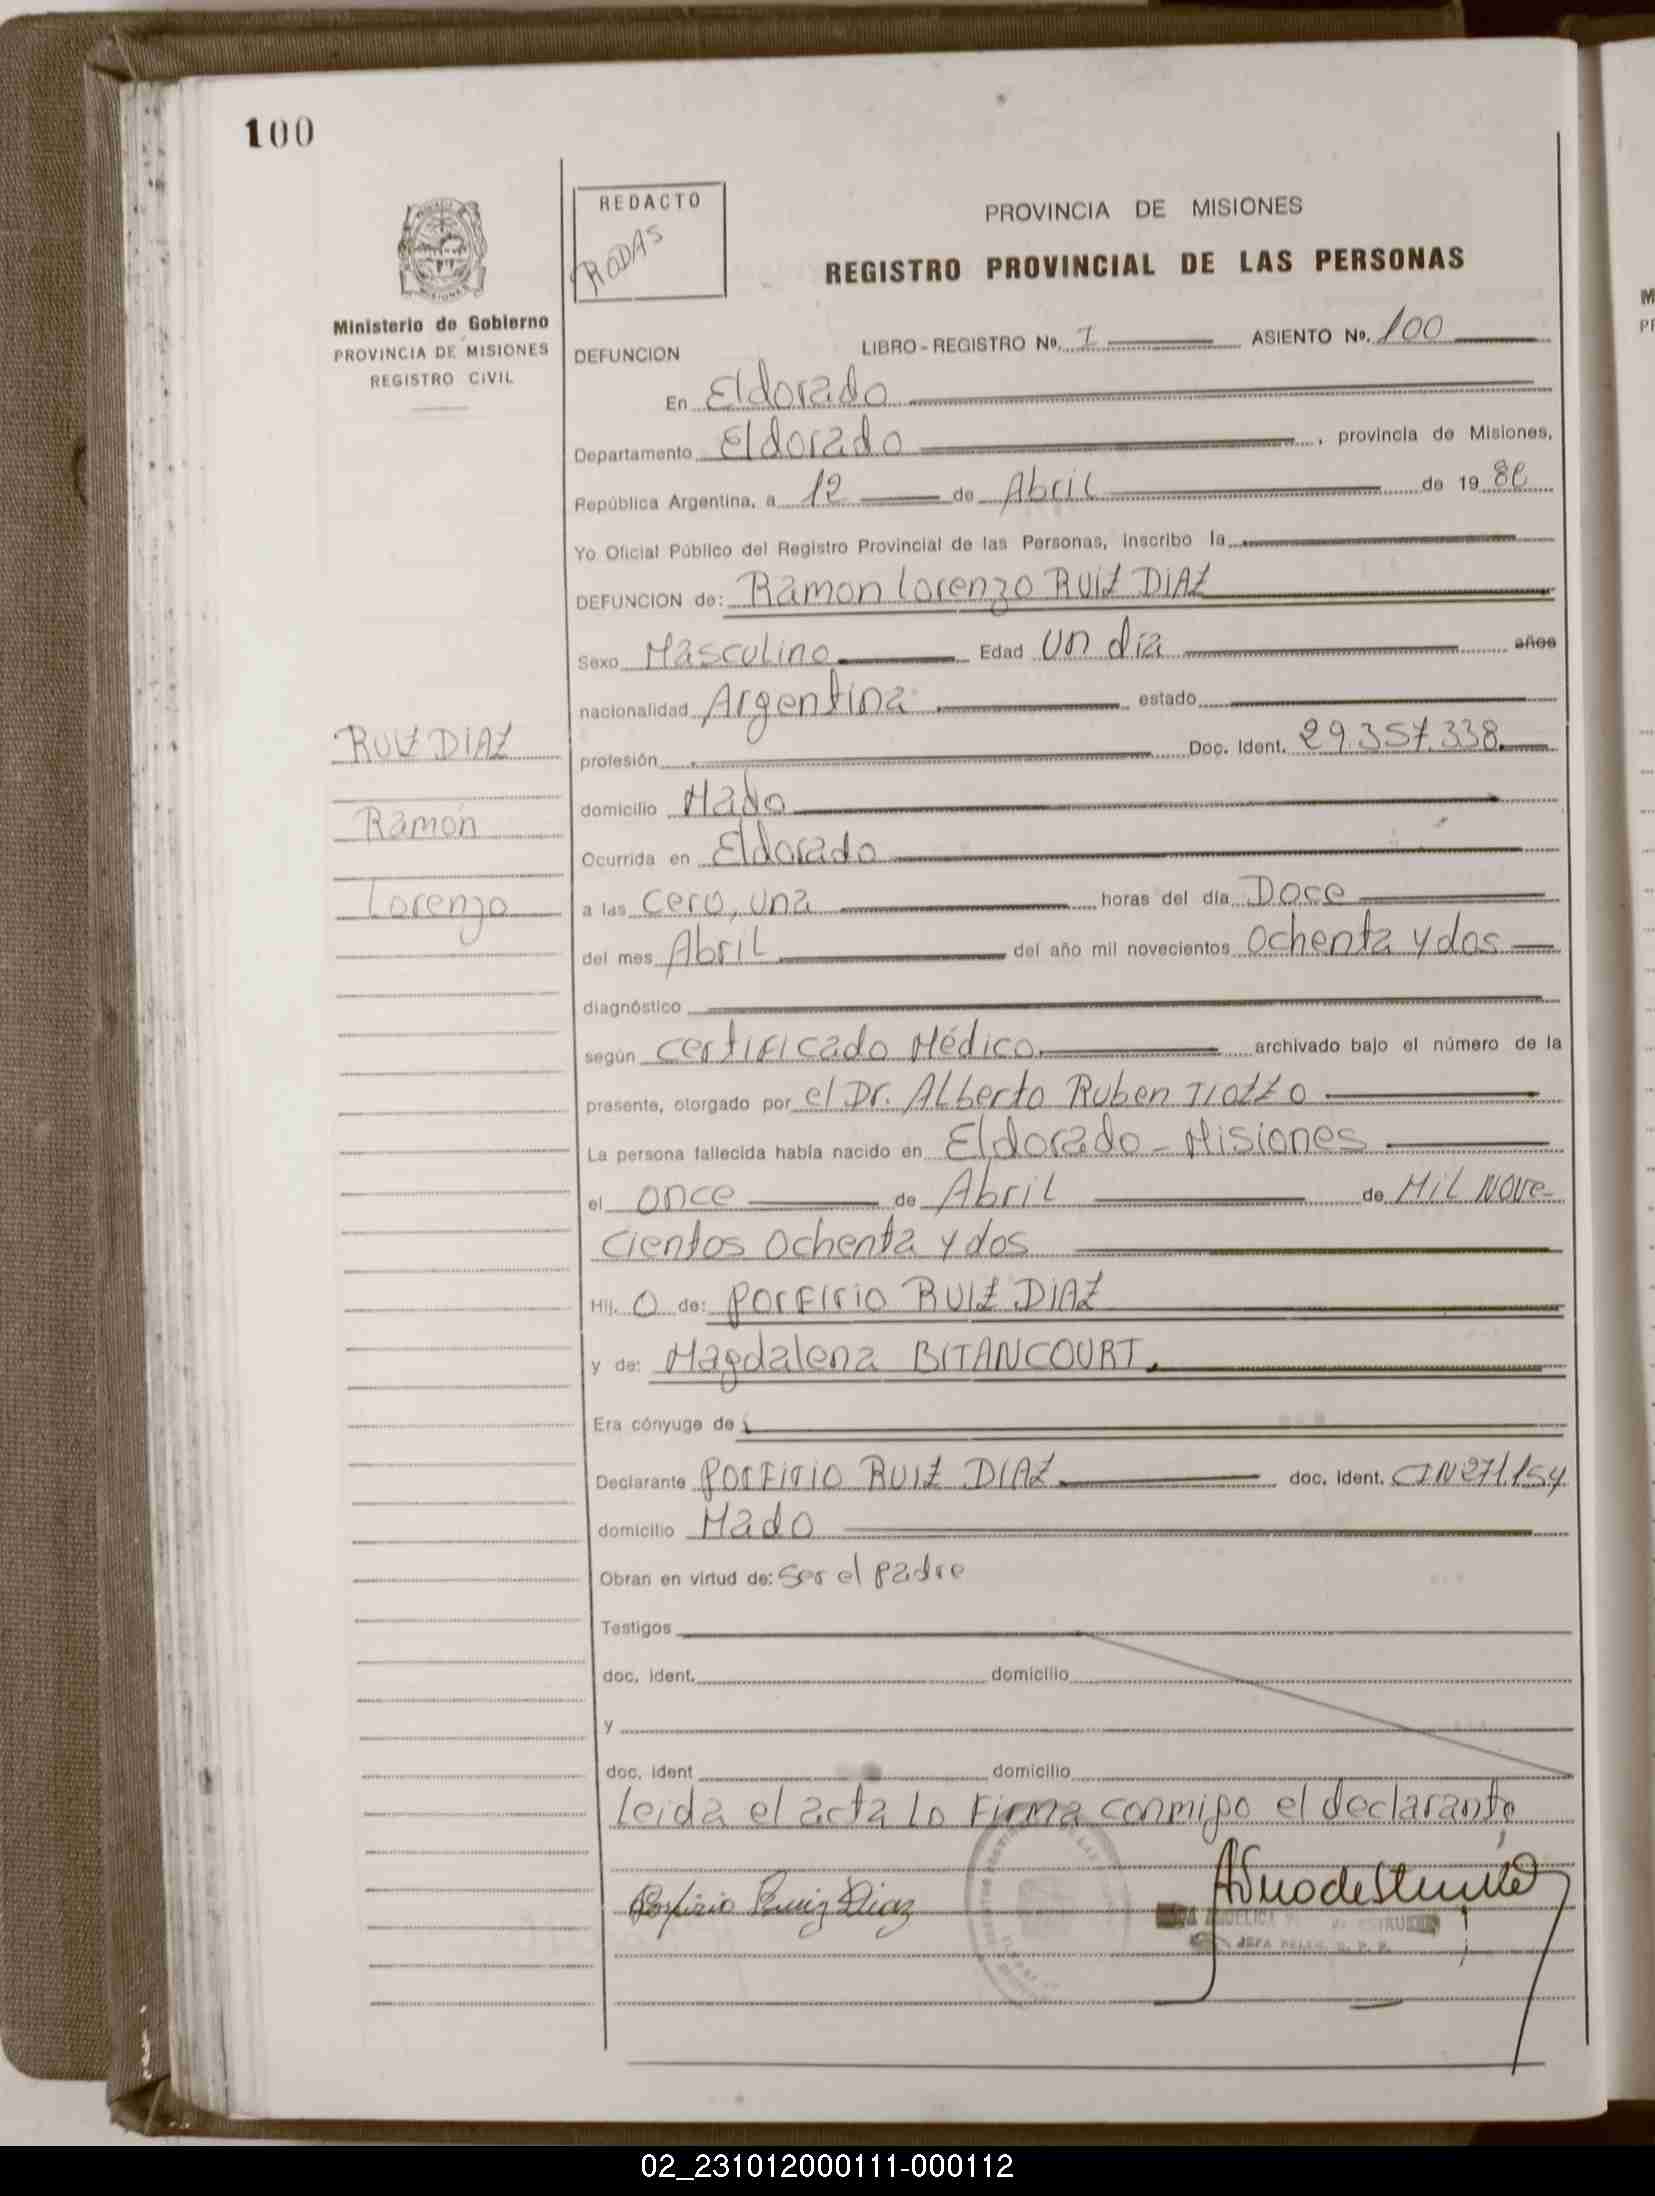 100
REDACTO
RODAS
PROVINCIA DE MISIONES
REGISTRO PROVINCIAL DE LAS PERSONAS
Ministerio de Gobierno
PROVINCIA DE MISIONES
REGISTRO CIVIL
DEFUNCION LIBRO-REGISTRO Nº. I ASIENTO Nº. 100
En Eldorado
Departamento Eldorado, provincia de Misiones,
República Argentina, a 12 de Abril de 19 82
Yo Oficial Público del Registro Provincial de las Personas, inscribo la
DEFUNCION de: Ramon Lorenzo RUIZ DIAZ
Sexo Masculino Edad un día años
nacionalidad Argentina estado
RUIZ DIAZ
Ramón
Lorenzo
profesión Doc. Ident. 29.357.338
domicilio Mado
Ocurrida en Eldorado
a las cero, una horas del día Doce
del mes Abril del año mil novecientos ochenta y dos
diagnóstico
según certificado Médico archivado bajo el número de la
presente, otorgado por el Dr. Alberto Ruben
La persona fallecida había nacido en Eldorado - Misiones
el once de Abril de Mil Nove-
cientos ochenta y dos
Hij. o de: Porfirio RUIZ DIAZ
y de: Magdalena BITANCOURT.
Era cónyuge de
Declarante Porfirio RUIZ DIAZ doc. ident. CIN 271.154
domicilio Mado
Obran en virtud de: ser el padre
Testigos
doc. ident. domicilio
y
doc. ident domicilio
Leida el acta lo firma conmigo el declarante
Porfirio Ruiz Diaz
02_231012000111-000112